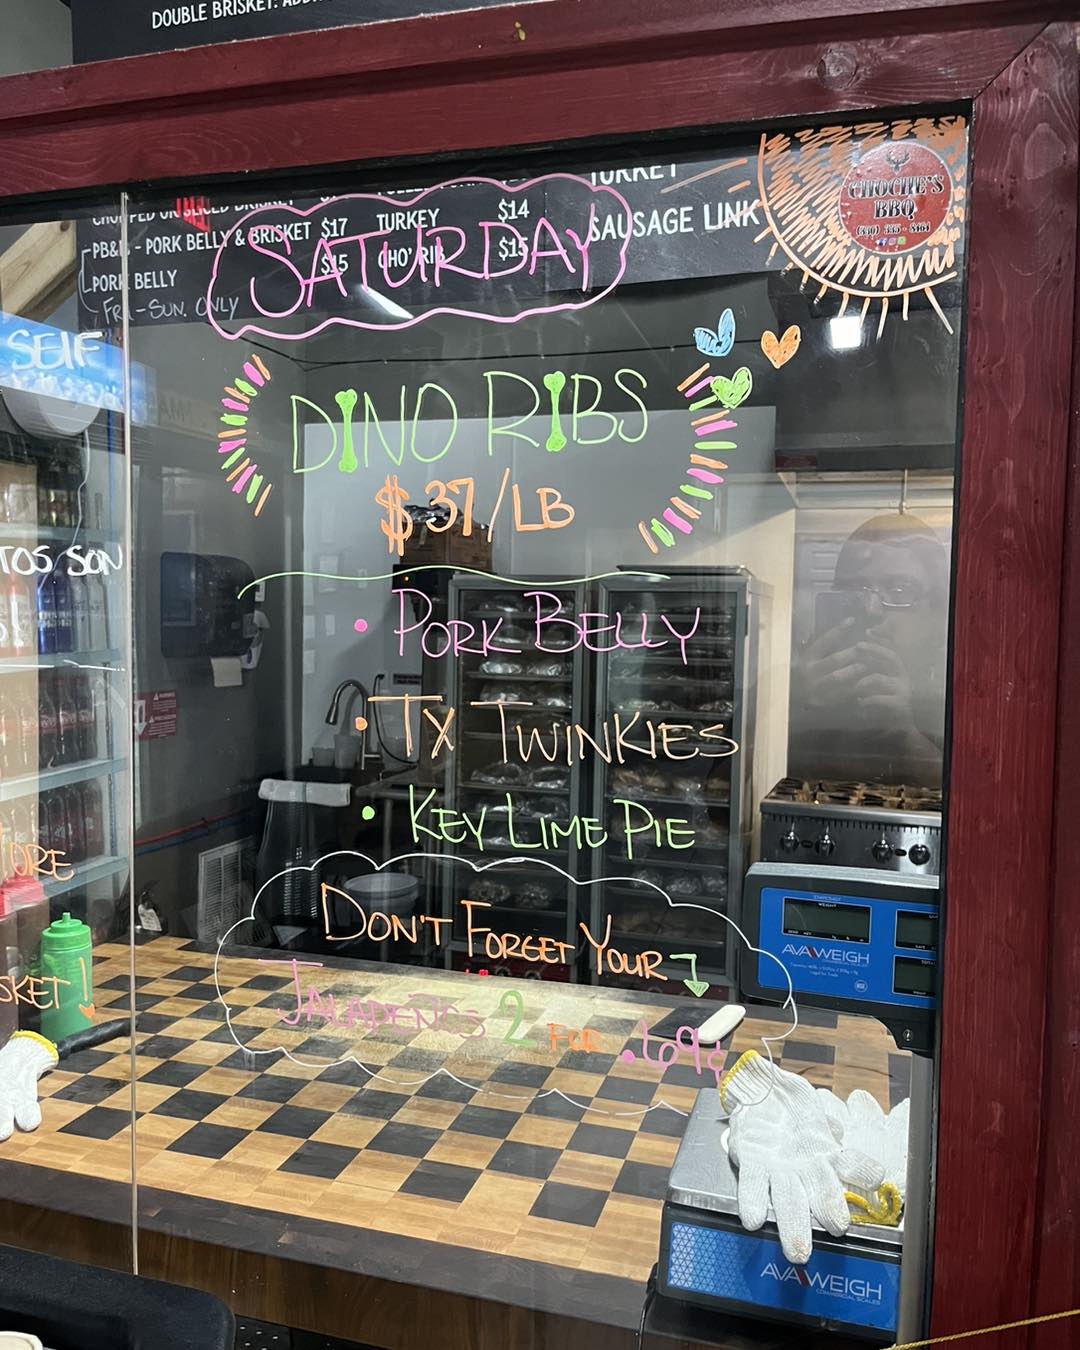 DOUBLE BRISKET:
CHOPPED OR SLICED BRISKET
PB&B - PORK BELLY & BRISKET $17
PORK BELLY $15
FRI-SUN. ONLY
TURKEY $14
$15
TURKEY
SAUSAGE LINK
CHOCHE'S
BBQ
SATURDAY
DINO RIBS
$37/LB
• PORK BELLY
• TX TWINKIES
• KEY LIME PIE
DON'T FORGET YOUR
JALAPEÑOS 2 FOR .69¢
SELF
TOS SON
SKET!
AVAWEIGH
AVAWEIGH
COMMERCIAL SCALES